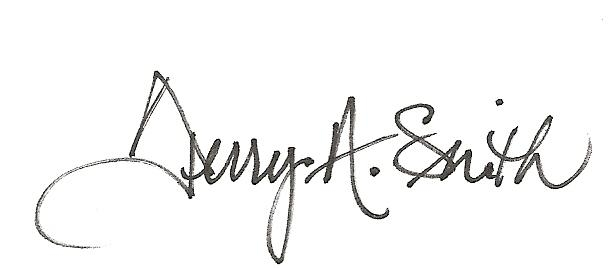 Terry A. Smith